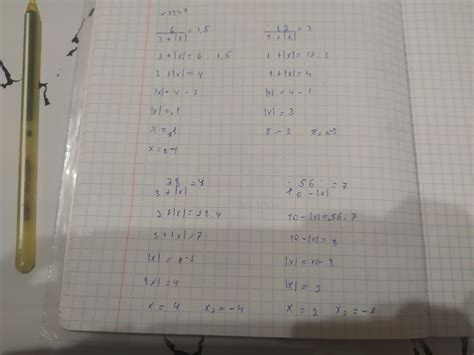 6 / 3+|x| = 1,5
3+|x| = 6 1.5
3+|x| = 4
|x| = 4 - 3
|x| = 1
x = 1
x = -1
12 / 1+|x| = 3
1+|x| = 12 : 3
1+|x| = 4
|x| = 4 - 1
|x| = 3
x = 3 x₂ = -3
28 / 3+|x| = 4
3+|x| = 28 : 4
3+|x| = 7
|x| = 7-3
|x| = 4
x = 4 x₂ = -4
56 / 10-|x| = 7
10-|x| = 56 : 7
10-|x| = 8
|x| = 10-8
|x| = 2
x = 2 x₂ = -2